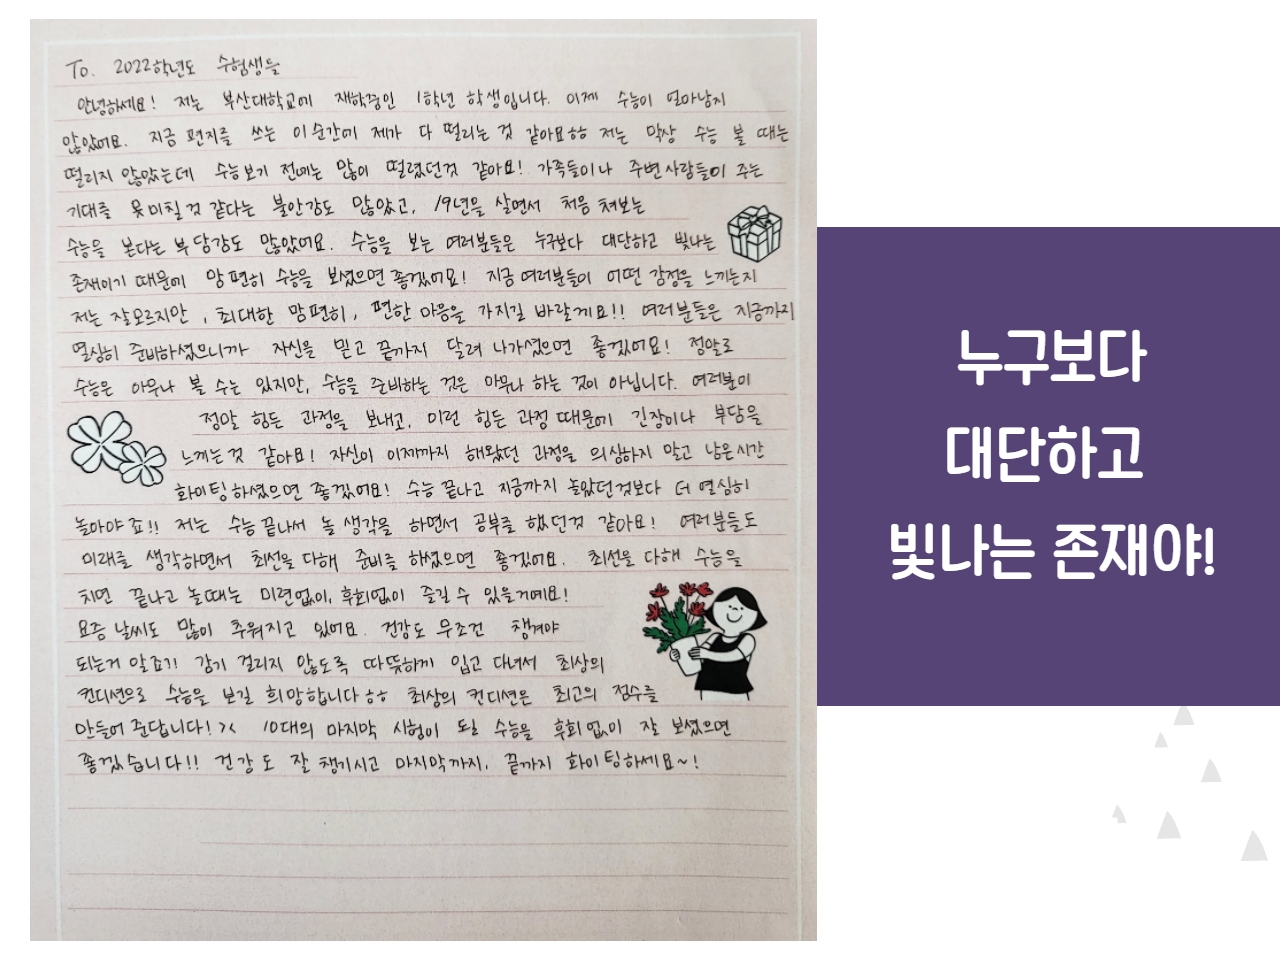 To. 2022학년도 수험생들
안녕하세요! 저는 부산대학교에 재학중인 1학년 학생입니다. 이제 수능이 얼마남지
않았어요. 지금 편지를 쓰는 이 순간에 제가 다 떨리는 것 같아요ㅎㅎ 저는 막상 수능 볼 때는
떨리지 않았는데 수능보기 전에는 많이 떨렸던것 같아요! 가족들이나 주변사람들이 주는
기대를 못미칠 것 같다는 불안감도 많았고, 19년을 살면서 처음 쳐보는
수능을 본다는 부담감도 많았어요. 수능을 보는 여러분들은 누구보다 대단하고 빛나는
존재이기 때문에 맘 편히 수능을 보셨으면 좋겠어요! 지금 여러분들이 어떤 감정을 느끼는지
저는 잘모르지만, 최대한 맘편히, 편한 마음을 가지길 바랄게요!! 여러분들은 지금까지
열심히 준비하셨으니까 자신을 믿고 끝까지 달려 나가셨으면 좋겠어요! 정말로
수능은 아무나 볼 수는 있지만, 수능을 준비하는 것은 아무나 하는 것이 아닙니다. 여러분이
정말 힘든 과정을 보내고, 이런 힘든 과정 때문에 긴장이나 부담을
느끼는것 같아요! 자신이 이제까지 해왔던 과정을 의심하지 말고 남은시간
화이팅하셨으면 좋겠어요! 수능 끝나고 지금까지 놀았던것보다 더 열심히
놀아야죠!! 저는 수능끝나서 놀 생각을 하면서 공부를 했던것 같아요! 여러분들도
미래를 생각하면서 최선을 다해 준비를 하셨으면 좋겠어요. 최선을 다해 수능을
치면 끝나고 놀때는 미련없이, 후회없이 즐길 수 있을거예요!
요즘 날씨도 많이 추워지고 있어요. 건강도 무조건 챙겨야
되는거 알죠?! 감기 걸리지 않도록 따뜻하게 입고 다녀서 최상의
컨디션으로 수능을 보길 희망합니다ㅎㅎ 최상의 컨디션은 최고의 점수를
만들어준답니다! >< 10대의 마지막 시험이 될 수능을 후회없이 잘 보셨으면
좋겠습니다!! 건강도 잘 챙기시고 마지막까지, 끝까지 화이팅하세요~!
누구보다
대단하고
빛나는 존재야!